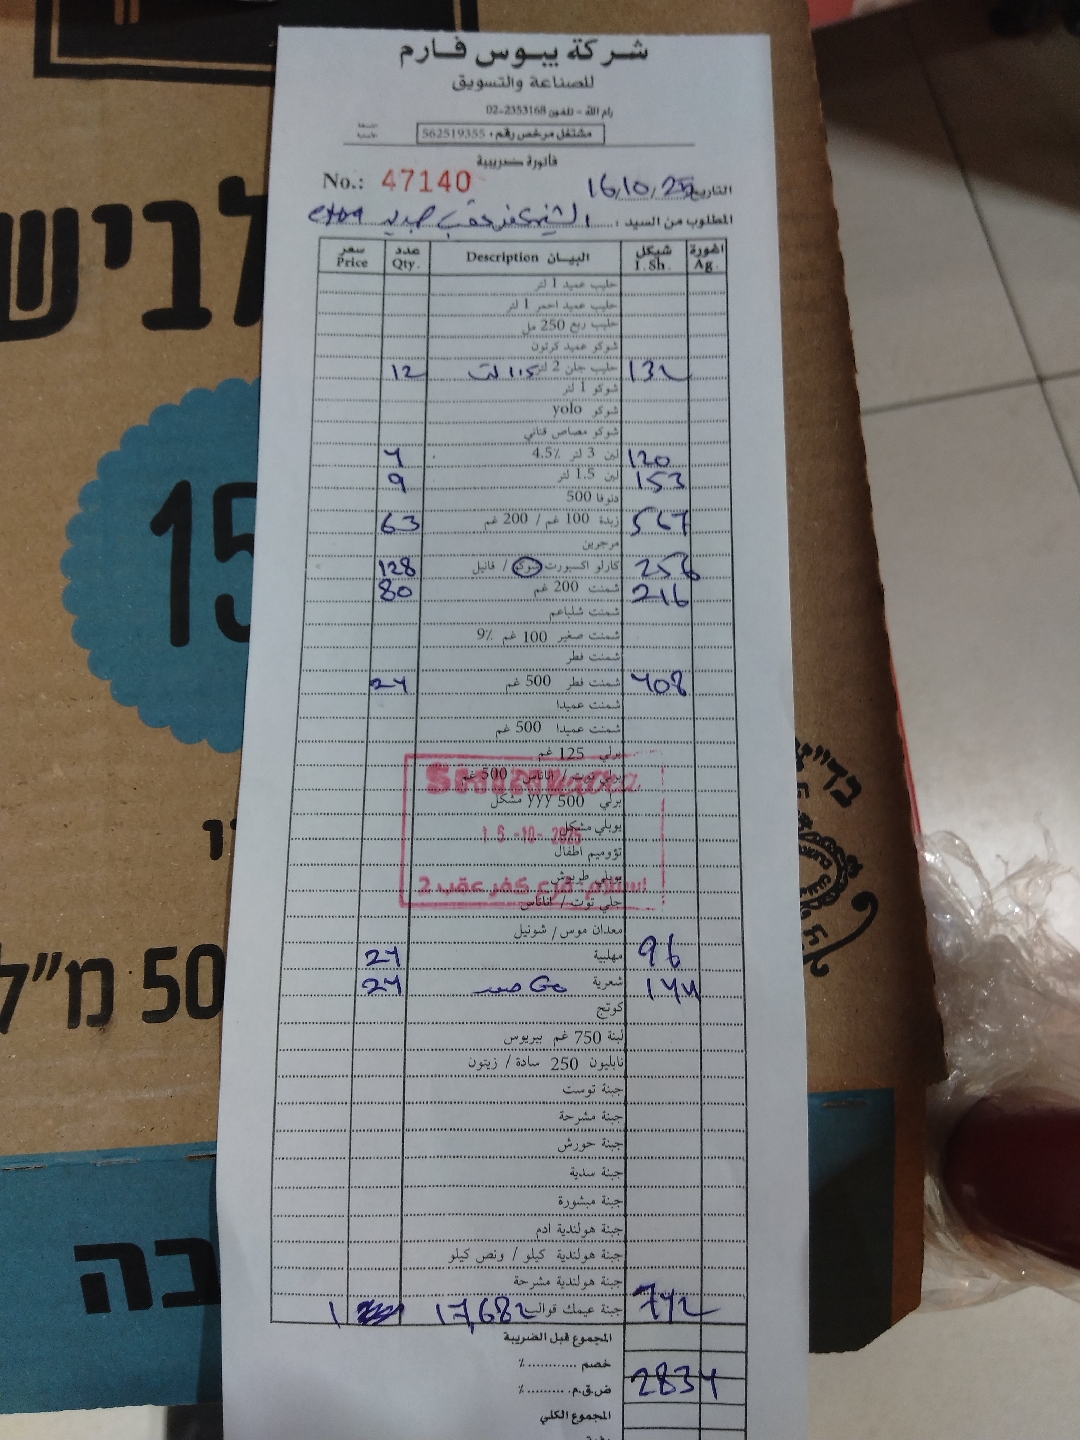 شركة يبوس فارم
للصناعة والتسويق
رام الله - تلفون 02-2353168
مشتغل مرخص رقم: 562519355
فاتورة ضريبية
No.: 47140
التاريخ 16/10/25
المطلوب من السيد :
سعر Price عدد Qty. البيـان Description شيكل I.Sh. اغورة Ag.
حليب عميد 1 لتر
حليب عميد احمر 1 لتر
حليب ربع 250 مل
شوكو عميد كرتون
12 حليب جلن 2 لتر 132
شوكو 1 لتر
شوكو yolo
شوكو مصاص قناني
لبن 3 لتر 4.5٪ 120
9 لبن 1.5 لتر 153
دنوفا 500
63 زبدة 100 غم / 200 غم 567
مرجرين
128 كارلو اكسبورت شوكو / فانيل 256
80 شمنت 200 غم 216
شمنت شلباعم
شمنت صغير 100 غم 9٪
شمنت فطر
24 شمنت فطر 500 غم 408
شمنت عميدا
شمنت عميدا 500 غم
برلي 125 غم
برلي توت / اناناس 500 غم
برلي 500 yyy مشكل
يوبلي مشكل
تؤوميم اطفال
يوبلي طربوش
حلي توت / اناناس
استلام فرع كفر عقب 2
معدان موس / شونيل
24 مهلبية 96
24 شعرية Go 144
كوتج
لبنة 750 غم بيريوس
نابليون 250 سادة / زيتون
جبنة توست
جبنة مشرحة
جبنة حورش
جبنة سدية
جبنة مبشورة
جبنة هولندية ادم
جبنة هولندية كيلو / ونص كيلو
جبنة هولندية مشرحة
1 17,682 جبنة عيمك قوالب 742
المجموع قبل الضريبة
خصم ............ ٪
2834
ض.ق.م. .......... ٪
المجموع الكلي
לביש
15
50 מ"ל
בד"צ
בה